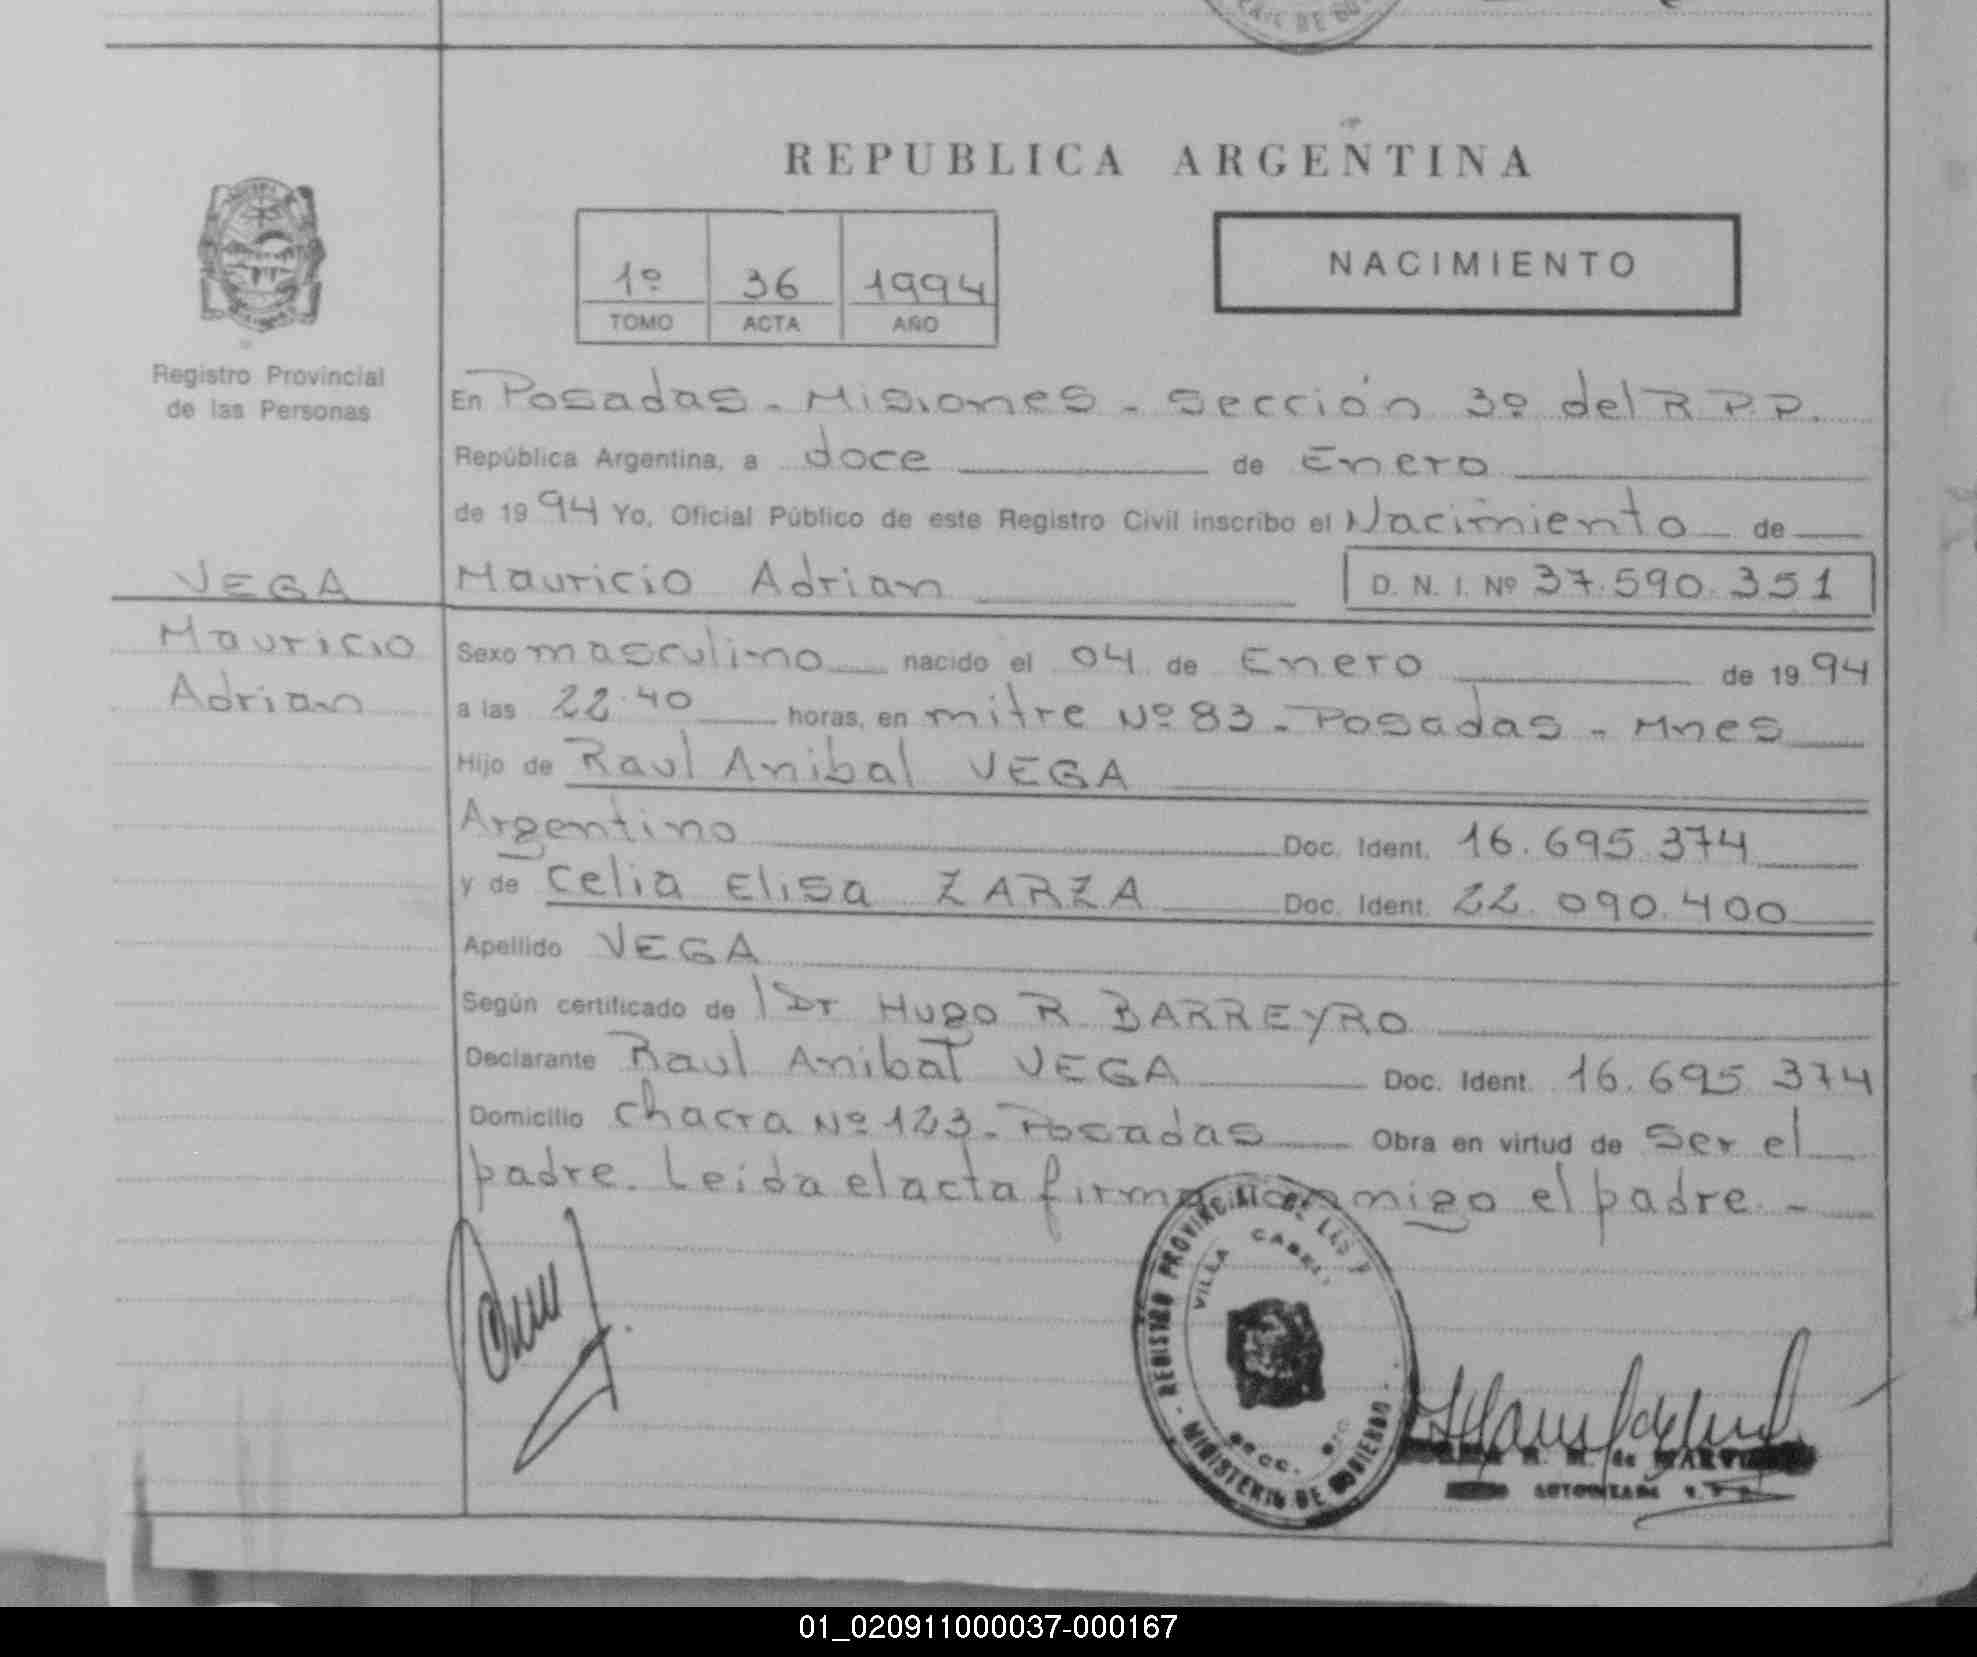 REPUBLICA ARGENTINA
1º 36 1994
TOMO ACTA AÑO
NACIMIENTO
Registro Provincial
de las Personas
VEGA
Mauricio
Adrian
En Posadas - Misiones - Sección 3º del R.P.P.
República Argentina, a doce de Enero
de 1994 Yo, Oficial Público de este Registro Civil inscribo el Nacimiento de
Mauricio Adrian D. N. I. Nº 37.590.351
Sexo masculino nacido el 04 de Enero de 1994
a las 22.40 horas, en mitre Nº 83 - Posadas - Mnes
Hijo de Raul Anibal VEGA
Argentino Doc. Ident. 16.695.374
y de Celia Elisa ZARZA Doc. Ident. 22.090.400
Apellido VEGA
Según certificado de Dr Hugo R BARREYRO
Declarante Raul Anibal VEGA Doc. Ident. 16.695.374
Domicilio Chacra Nº 123 - Posadas Obra en virtud de Ser el
padre. Leida el acta firma conmigo el padre. -
REGISTRO PROVINCIAL DE LAS P
VILLA CABEL
SECC.
- MINISTERIO DE GOBIERNO -
01_020911000037-000167